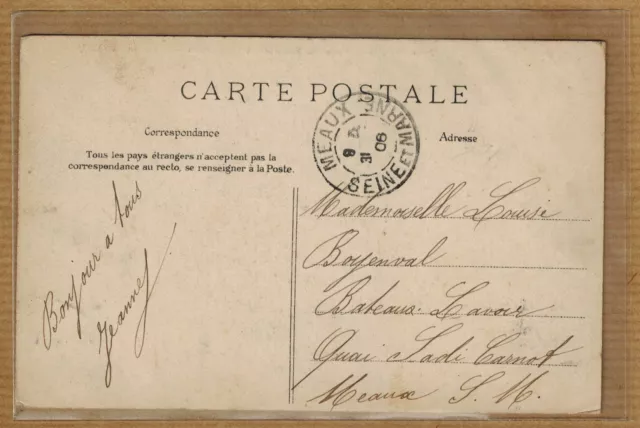 CARTE POSTALE
Correspondance
Tous les pays étrangers n'acceptent pas la
correspondance au recto, se renseigner à la Poste.
Adresse
MEAUX
SEINE ET MARNE
31
08
Bonjour a tous
Jeanne
Mademoiselle Louise
Boyenval
Bateaux-Lavoir
Quai Sadi Carnot
Meaux S. M.